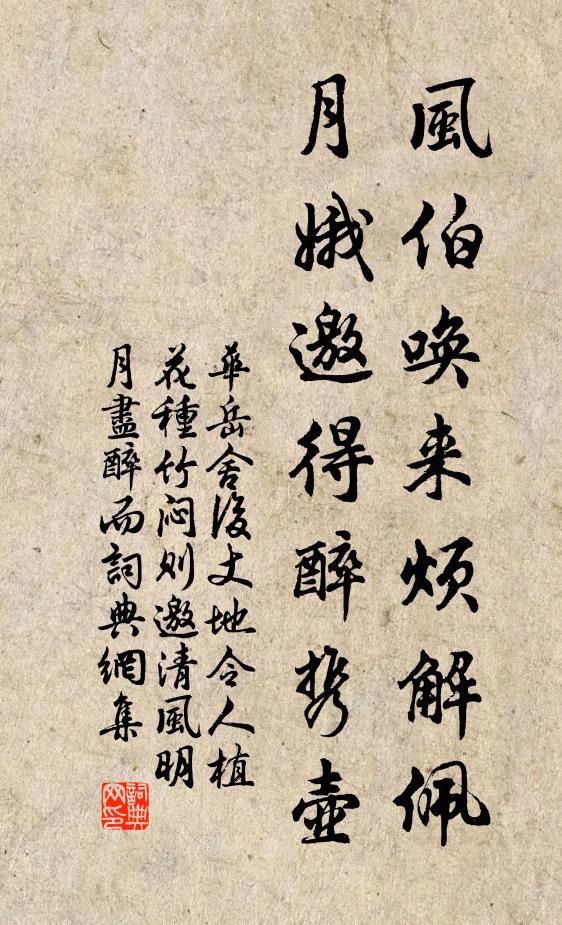 風伯唤来烦解佩
月娥邀得醉携壺
華岳舍後丈地令人植
花種竹闷则邀清風明
月盡醉而詞典網集
詞典网印